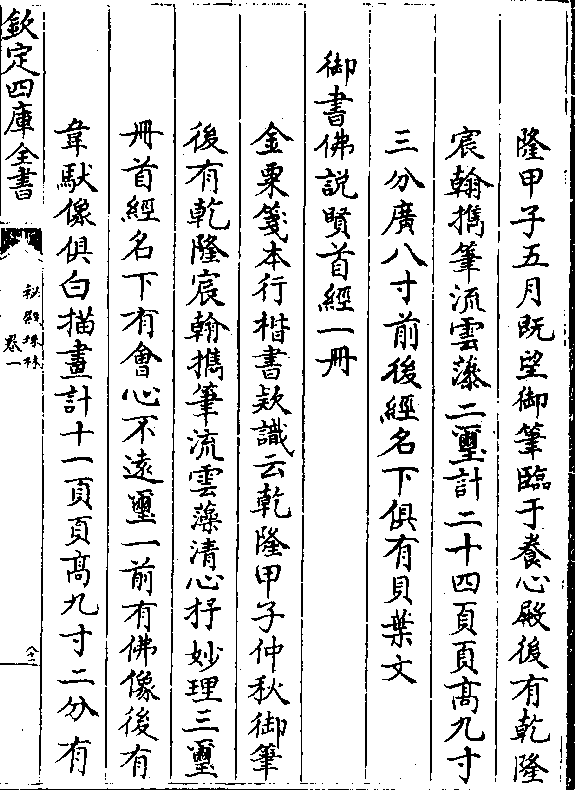 隆甲子五月既望御筆臨于養心殿後有乾隆
宸翰擕筆流雲藻二璽計二十四頁頁髙九寸
三分廣八寸前後經名下俱有貝葉文
御書佛説賢首經一冊
金粟箋本行楷書欵識云乾隆甲子仲秋御筆
後有乾隆宸翰擕筆流雲藻清心抒妙理三璽
冊首經名下有會心不遠璽一前有佛像後有
韋馱像俱白描畫計十一頁頁髙九寸二分有
欽定四庫全書
秘殿珠林
卷一